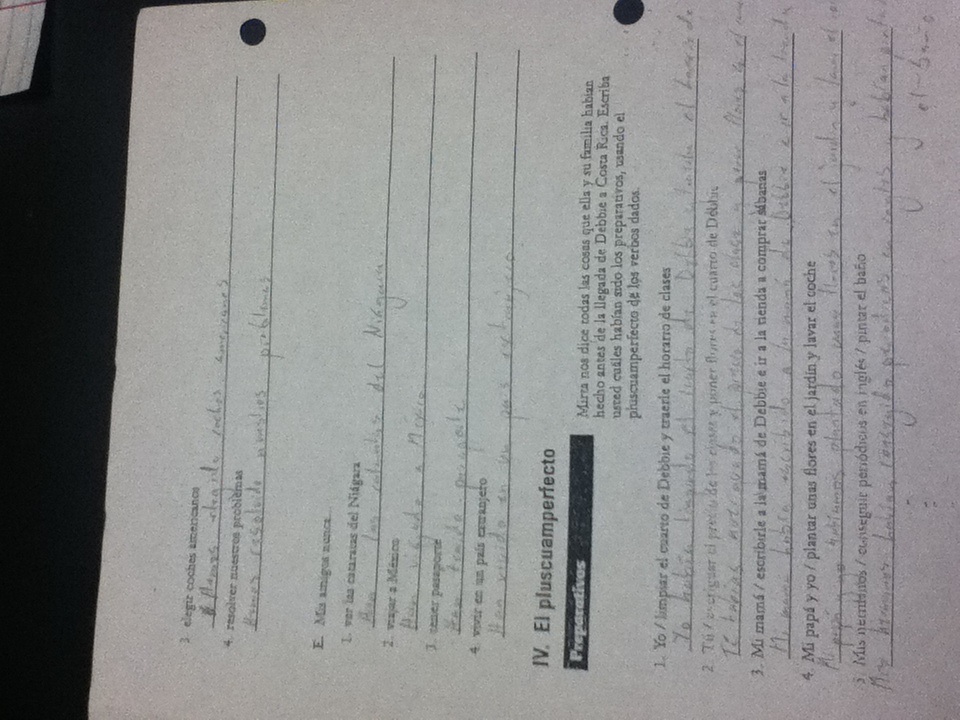 3. elegir coches americanos
Hemos elegido coches americanos
4. resolver nuestros problemas
Hemos resolvido nuestros problemas
E. Mis amigos nunca...
1. ver las cataratas del Niágara
Han las cataratas del
2. viajar a México
Han viajado a México
3. tener pasaporte
Han tenido pasaporte
4. vivir en un país extranjero
Han vivido en un país extranjero
IV. El pluscuamperfecto
Preparativos
Mirta nos dice todas las cosas que ella y su familia habían
hecho antes de la llegada de Debbie a Costa Rica. Escriba
usted cuáles habían sido los preparativos, usando el
pluscuamperfecto de los verbos dados.
1. Yo / limpiar el cuarto de Debbie y traerle el horario de clases
Yo había limpiado el cuarto de Debbie y el horario de
2. Tú / averiguar el precio de las clases y poner flores en el cuarto de Debbie
Tú habías el precio de las clases y poner flores en el
3. Mi mamá / escribirle a la mamá de Debbie e ir a la tienda a comprar sábanas
Mi mamá había escribido a la mamá de Debbie e ir a la tienda
4. Mi papá y yo / plantar unas flores en el jardín y lavar el coche
Mi papá y yo habíamos plantado unas flores en el jardín y lavar el
5. Mis hermanos / conseguir periódicos en inglés / pintar el baño
Mis hermanos habían conseguido periódicos en inglés y habían
el baño